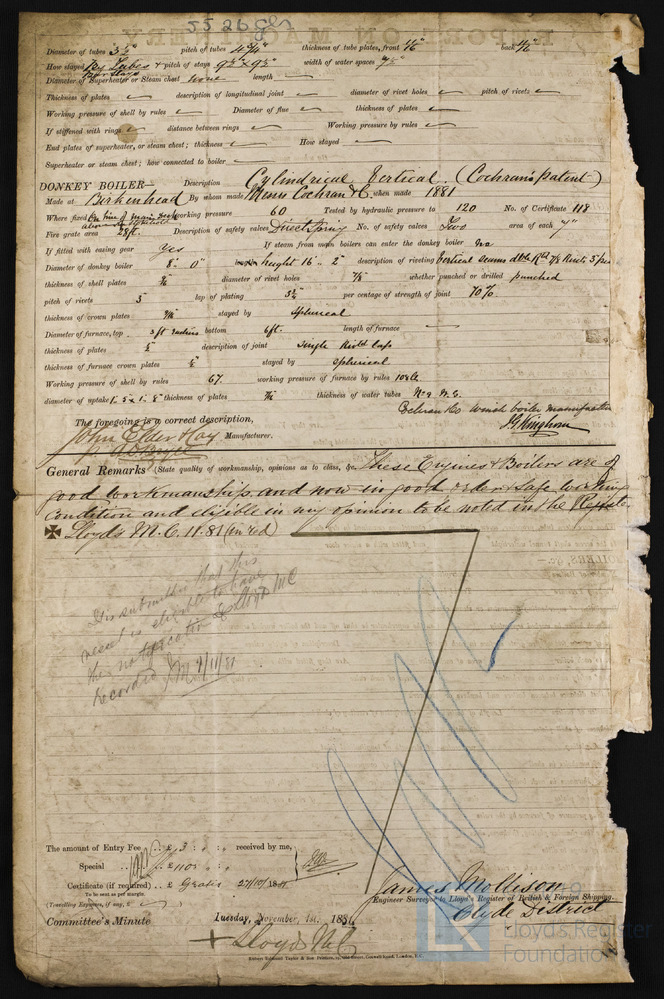 5526 Gls
Diameter of tubes 3½" pitch of tubes 4¾" thickness of tube plates, front 11/16" back 11/16"
How stayed By Tubes + pitch of stays 9½" x 9½" width of water spaces
Bar Stays
Diameter of Superheater or Steam chest none length
Thickness of plates description of longitudinal joint diameter of rivet holes pitch of rivets
Working pressure of shell by rules Diameter of flue thickness of plates
If stiffened with rings distance between rings Working pressure by rules
End plates of superheater, or steam chest; thickness How stayed
Superheater or steam chest; how connected to boiler
DONKEY BOILER— Description Cylindrical Vertical (Cochran's patent)
Made at Birkenhead By whom made Messrs Cochran & Co when made 1881
Where fixed working pressure 60 Tested by hydraulic pressure to 120 No. of Certificate 118
Fire grate area 28 ft. Description of safety valves Direct Spring No. of safety valves Two area of each 7"
If fitted with easing gear Yes If steam from main boilers can enter the donkey boiler No
Diameter of donkey boiler 8" 0" height 16" 2" description of riveting Vertical seams dble Rtd 7/8 Rivets
thickness of shell plates diameter of rivet holes 7/8 whether punched or drilled punched
pitch of rivets 3" lap of plating per centage of strength of joint 70%
thickness of crown plates 9/16 stayed by Spherical
Diameter of furnace, top 3 ft radius bottom 6 ft. length of furnace
thickness of plates ½" description of joint Single Rivtd Lap
thickness of furnace crown plates stayed by Spherical
Working pressure of shell by rules 67. working pressure of furnace by rules
diameter of uptake thickness of plates thickness of water tubes
Cochran & Co boiler manufacturer
The foregoing is a correct description,
John Elder & Coy Manufacturer.
General Remarks (State quality of workmanship, opinions as to class, &c. These Engines & Boilers are of
good workmanship and now in good order & safe working
condition and eligible in my opinion to be noted in the
✠ Lloyd's M.C. 11.81 (in red)
It is submitted that this
vessel is eligible to have
the notification ✠ Lloyd's MC
recorded 1/11/81
The amount of Entry Fee .. £ 3 : : received by me,
Special .. £
Certificate (if required) .. £ Gratis 27/10/1881
To be sent as per margin.
(Travelling Expenses, if any, £ )
James Mollison
Engineer Surveyor to Lloyd's Register of British & Foreign Shipping.
Clyde District
Committee's Minute Tuesday, November, 1st. 1881
+ Lloyd's M.C.
Lloyd's Register
Foundation